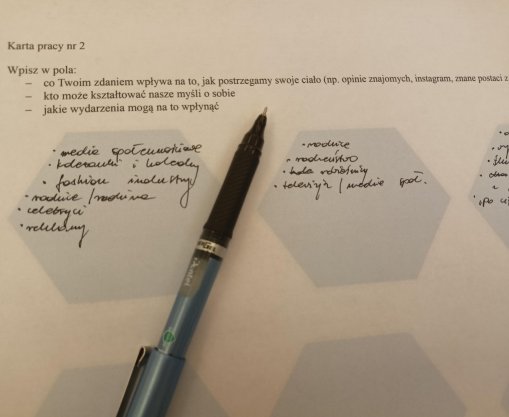 Karta pracy nr 2
Wpisz w pola:
– co Twoim zdaniem wpływa na to, jak postrzegamy swoje ciało (np. opinie znajomych, instagram, znane postaci z
– kto może kształtować nasze myśli o sobie
– jakie wydarzenia mogą na to wpłynąć
• media społecznościowe
• koleżanki i koledzy
• fashion industry
• rodzice / rodzina
• celebryci
• reklamy
• rodzice
• rodzeństwo
• koła rówieśnicy
• telewizja / media społ.
Pentel